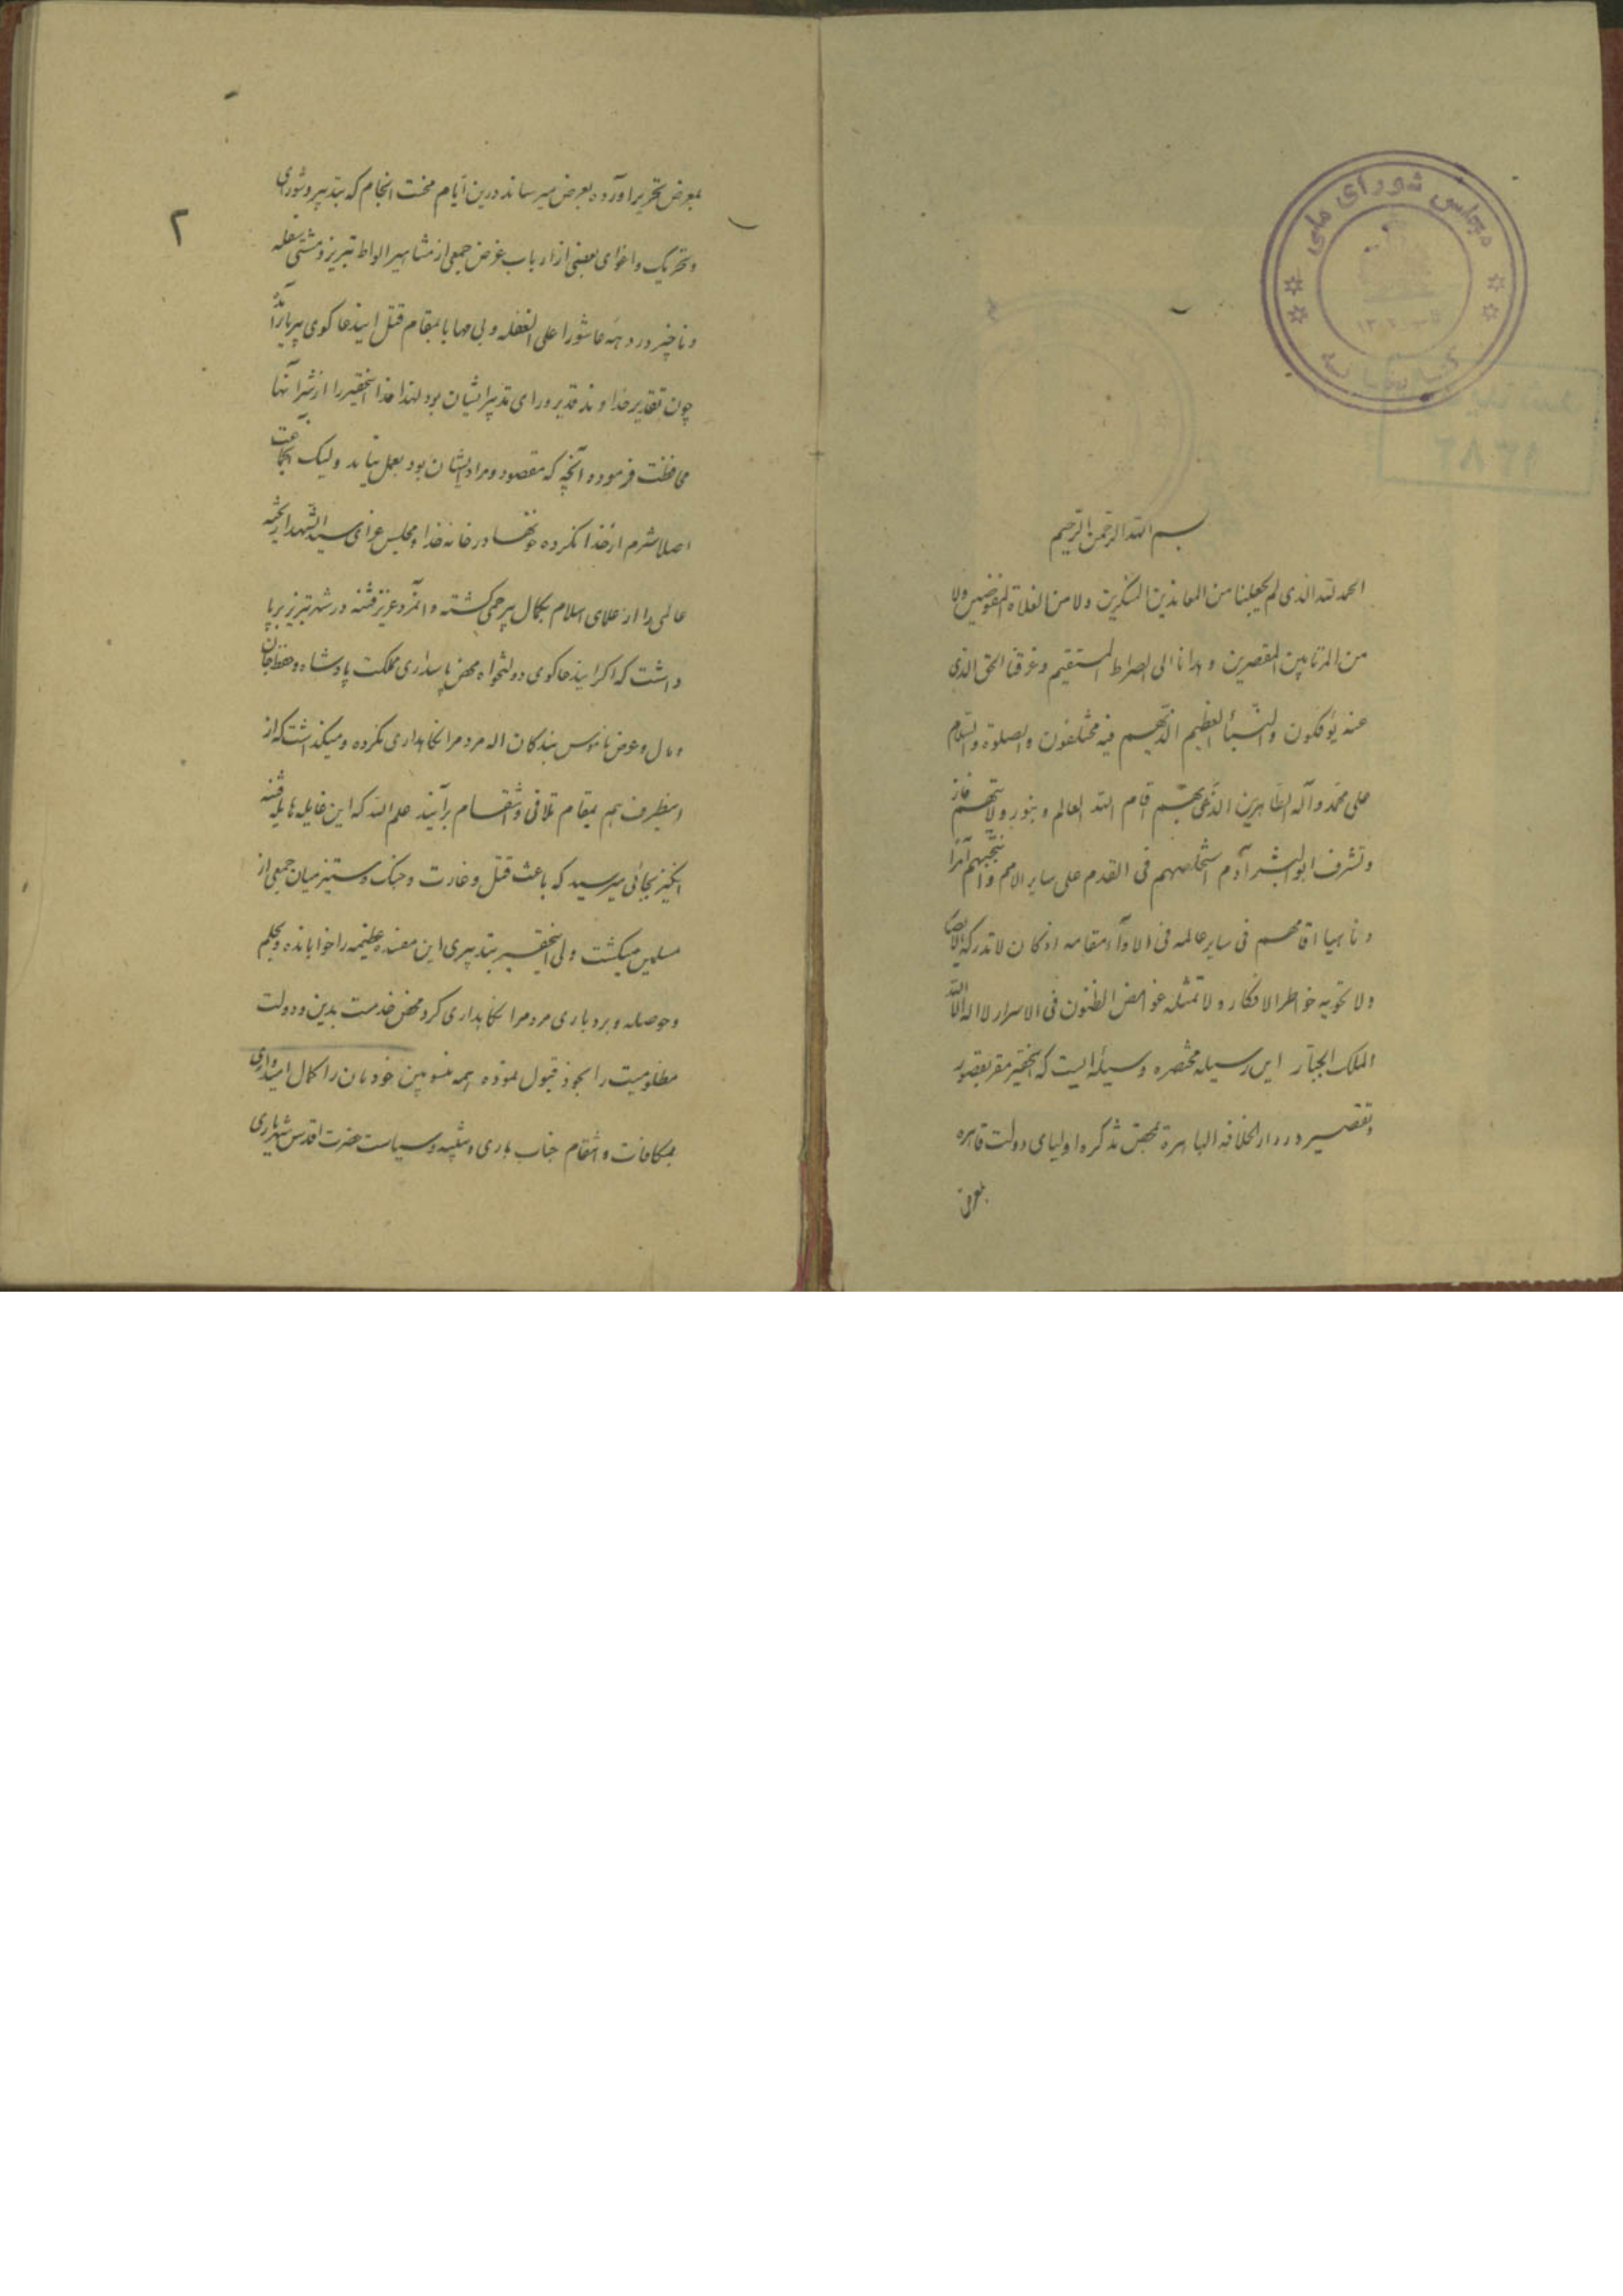 مجلس شورای ملی
کتابخانه
بسم الله الرحمن الرحیم
الحمد لله الذی لم یجعلنا من المعاندین المنکرین ولا من الغلاة المفوضین ولا
من المرتابین المقصرین و هدانا الی الصراط المستقیم و عرفنا الحق الذی
عنه یؤفکون والنبأ العظیم الذیهم فیه مختلفون والصلوة والسلام
علی محمد و آله الطاهرین الذی بهم قام الله العالم و بنور ولایتهم فاز
وتشرف ابوالبشر آدم استخلصهم فی القدم علی سایر الامم وانتجبهم آمرا
و ناهیا اقامهم فی سایر عالمه فی الاداء مقامه اذ کان لا تدرکه الابصار
ولا تحویه خواطر الافکار ولا تمثله غوامض الظنون فی الاسرار لا اله الا الله
الملک الجبار این رسیله مختصره وسیله‌ایست که این حقیر مقر بقصور
و تقصیر در دار الخلافه الباهرة محض تذکره اولیای دولت قاهره
بمعرض
۲
بمعرض تحریر آورده بعرض میرساند درین ایام محنت انجام که بتدبیر و شورای
و تحریک و اغوای بعضی از ارباب غرض جمعی از مشاهیر الواط تبریز و مشتی سفله
و ناچیز در دهه عاشورا علی الغفله و بی مهابا بمقام قتل ایندعا کوی بیریا برآمدند
چون تقدیر خداوند قدیر ورای تدبیر ایشان بود لهذا خدا اینحقیر را از شر آنها
محافظت فرموده آنچه که مقصود و مراد ایشان بود بعمل نیامد ولیک آنجماعت
اصلا شرم از خدا نکرده خونها در خانه خدا و مجلس عزای سید الشهدا ریخته
عالمی را از علمای اسلام بکمال بیرحمی کشته و آنمرد عزیز فتنه در شهر تبریز برپا
داشت که اکر ایندعا کوی دولتخواه محض پاسداری مملکت پادشاه و حفظ جان
و مال و عرض ناموس بندکان اله مردمرا نکاهداری نکرده و میکذاشت که از
اینطرف هم بمقام تلافی و انتقام برآیند علم الله که این غایله هایله فتنه
انکیز بجائی میرسید که باعث قتل و غارت و جنک و ستیز میان جمعی از
مسلمین میکشت ولی اینحقیر بتدبیری این مفسده عظیمه را خوابانده و بحلم
وحوصله و بردباری مردمرا نکاهداری کرد محض خدمت بدین و دولت
مظلومیت را بخود قبول نموده همه منسوبین خودمان را کمال امیدواری
بمکافات و انتقام جناب باری و تنبیه و سیاست حضرت اقدس شهریاری